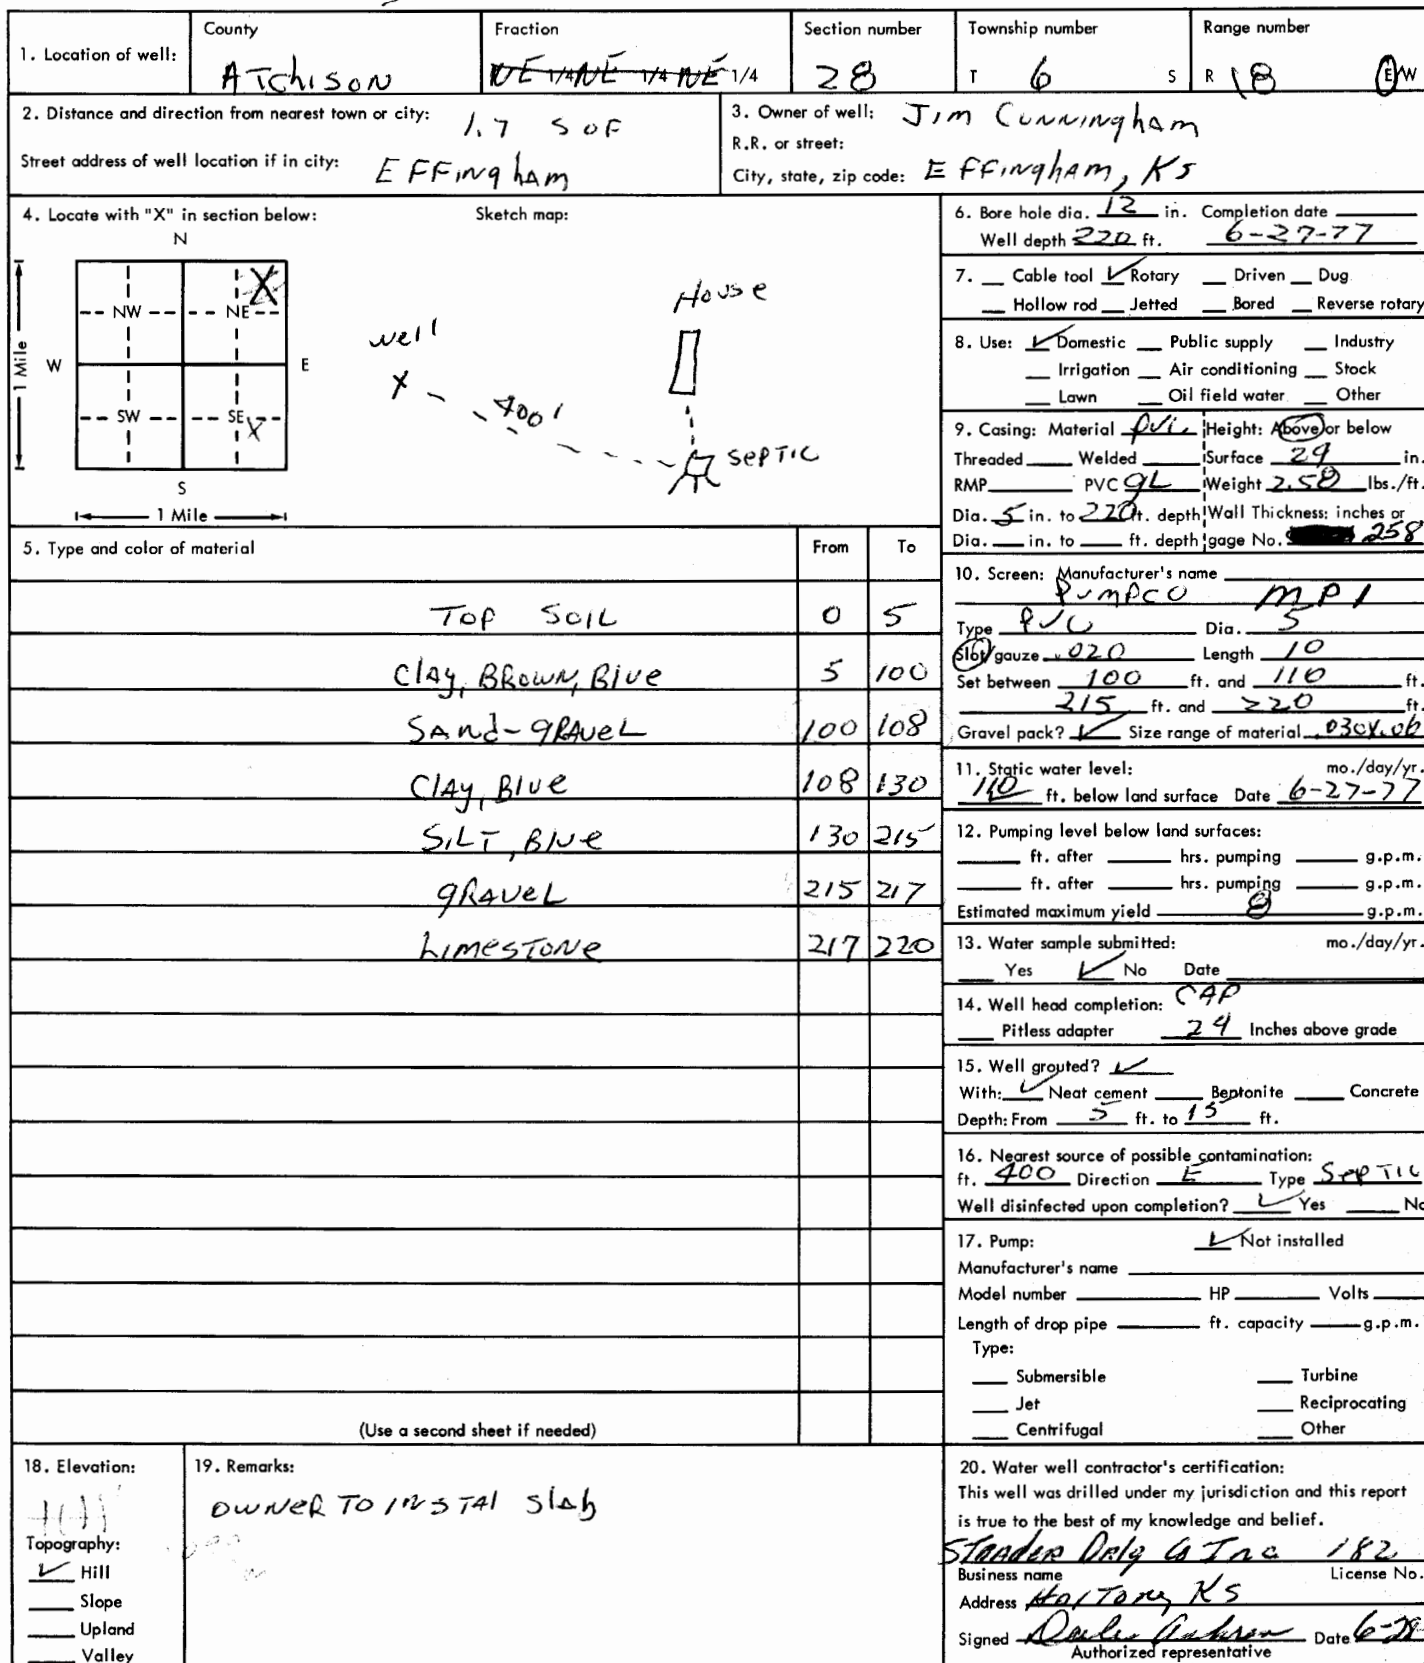 1. Location of well:
County
Atchison
Fraction
NE 1/4 NE 1/4 NE 1/4
Section number
28
Township number
T 6 S
Range number
R 18 E/W
2. Distance and direction from nearest town or city: 1.7 S OF
Street address of well location if in city: EFFingham
3. Owner of well: Jim Cunningham
R.R. or street:
City, state, zip code: EFFingham, KS
4. Locate with "X" in section below:
Sketch map:
N
NW NE X
W E
SW SE X
S
1 Mile
1 Mile
well
X
400'
House
SEPTIC
5. Type and color of material From To
Top SOIL 0 5
Clay, BROWN, Blue 5 100
SANd-gRAVeL 100 108
Clay, Blue 108 130
SILT, Blue 130 215
gRAVeL 215 217
LimesTONe 217 220
(Use a second sheet if needed)
6. Bore hole dia. 12 in. Completion date
Well depth 220 ft. 6-27-77
7. Cable tool ✓ Rotary Driven Dug
Hollow rod Jetted Bored Reverse rotary
8. Use: ✓ Domestic Public supply Industry
Irrigation Air conditioning Stock
Lawn Oil field water Other
9. Casing: Material PVC Height: Above or below
Threaded Welded Surface 24 in.
RMP PVC GL Weight 2.50 lbs./ft.
Dia. 5 in. to 220 ft. depth Wall Thickness: inches or
Dia. in. to ft. depth gage No. 258
10. Screen: Manufacturer's name
PUMPCO MPI
Type PVC Dia. 5
Slot/gauze .020 Length 10
Set between 100 ft. and 110 ft.
215 ft. and 220 ft.
Gravel pack? ✓ Size range of material .030x.06
11. Static water level: mo./day/yr.
110 ft. below land surface Date 6-27-77
12. Pumping level below land surfaces:
ft. after hrs. pumping g.p.m.
ft. after hrs. pumping g.p.m.
Estimated maximum yield 8 g.p.m.
13. Water sample submitted: mo./day/yr.
Yes ✓ No Date
14. Well head completion: CAP
Pitless adapter 24 Inches above grade
15. Well grouted? ✓
With: ✓ Neat cement Bentonite Concrete
Depth: From 5 ft. to 15 ft.
16. Nearest source of possible contamination:
ft. 400 Direction E Type SepTIC
Well disinfected upon completion? ✓ Yes No
17. Pump: ✓ Not installed
Manufacturer's name
Model number HP Volts
Length of drop pipe ft. capacity g.p.m.
Type:
Submersible Turbine
Jet Reciprocating
Centrifugal Other
18. Elevation:
Topography:
✓ Hill
Slope
Upland
Valley
19. Remarks:
OWNER TO INSTAl Slab
20. Water well contractor's certification:
This well was drilled under my jurisdiction and this report
is true to the best of my knowledge and belief.
Strader Drlg Co Inc 182
Business name License No.
Address Horton, KS
Signed Date 6-29-
Authorized representative